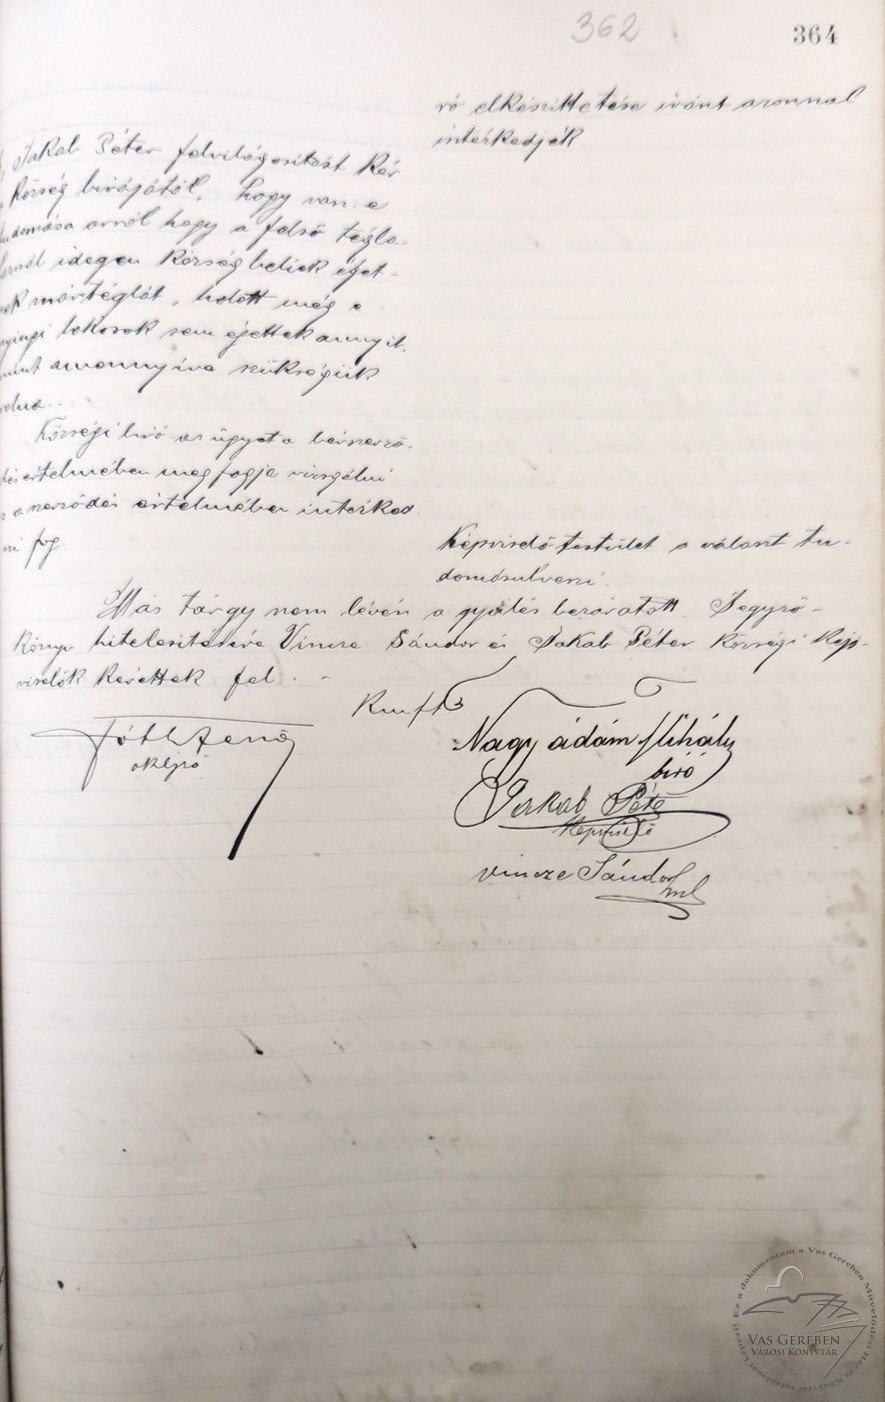 362
364
ró elkészíttetése iránt azonnal
intézkedjék.
Jakab Péter felvilágosítást kér
Község birájától, hogy van-e
tudomása arról hogy a felső tégla-
idegen községbeliek éget-
nek téglát, holott még a
lakosok sem égettek annyit,
mint amennyire szükségük
volna.
Községi biró az ügyet a bérszerző-
dés értelmében megfogja vizsgálni
s a szerződés értelmében intézked
ni fog
Képviselő testület a választ tu-
domásulveszi.
Más tárgy nem lévén a gyülés bezáratott. Jegyző-
könyv hitelesitésére Vincze Sándor és Jakab Péter községi kép-
viselők kérettek fel.
Kmft
Tóth Jenő
Nagy ádám Mihály
biró
Jakab Péte
képviselő
Vincze Sándor
VAS GEREBEN
VÁROSI KÖNYVTÁR
Ez a dokumentum a Vas Gereben Művelődési Ház és Könyvtár tulajdonát képezi!